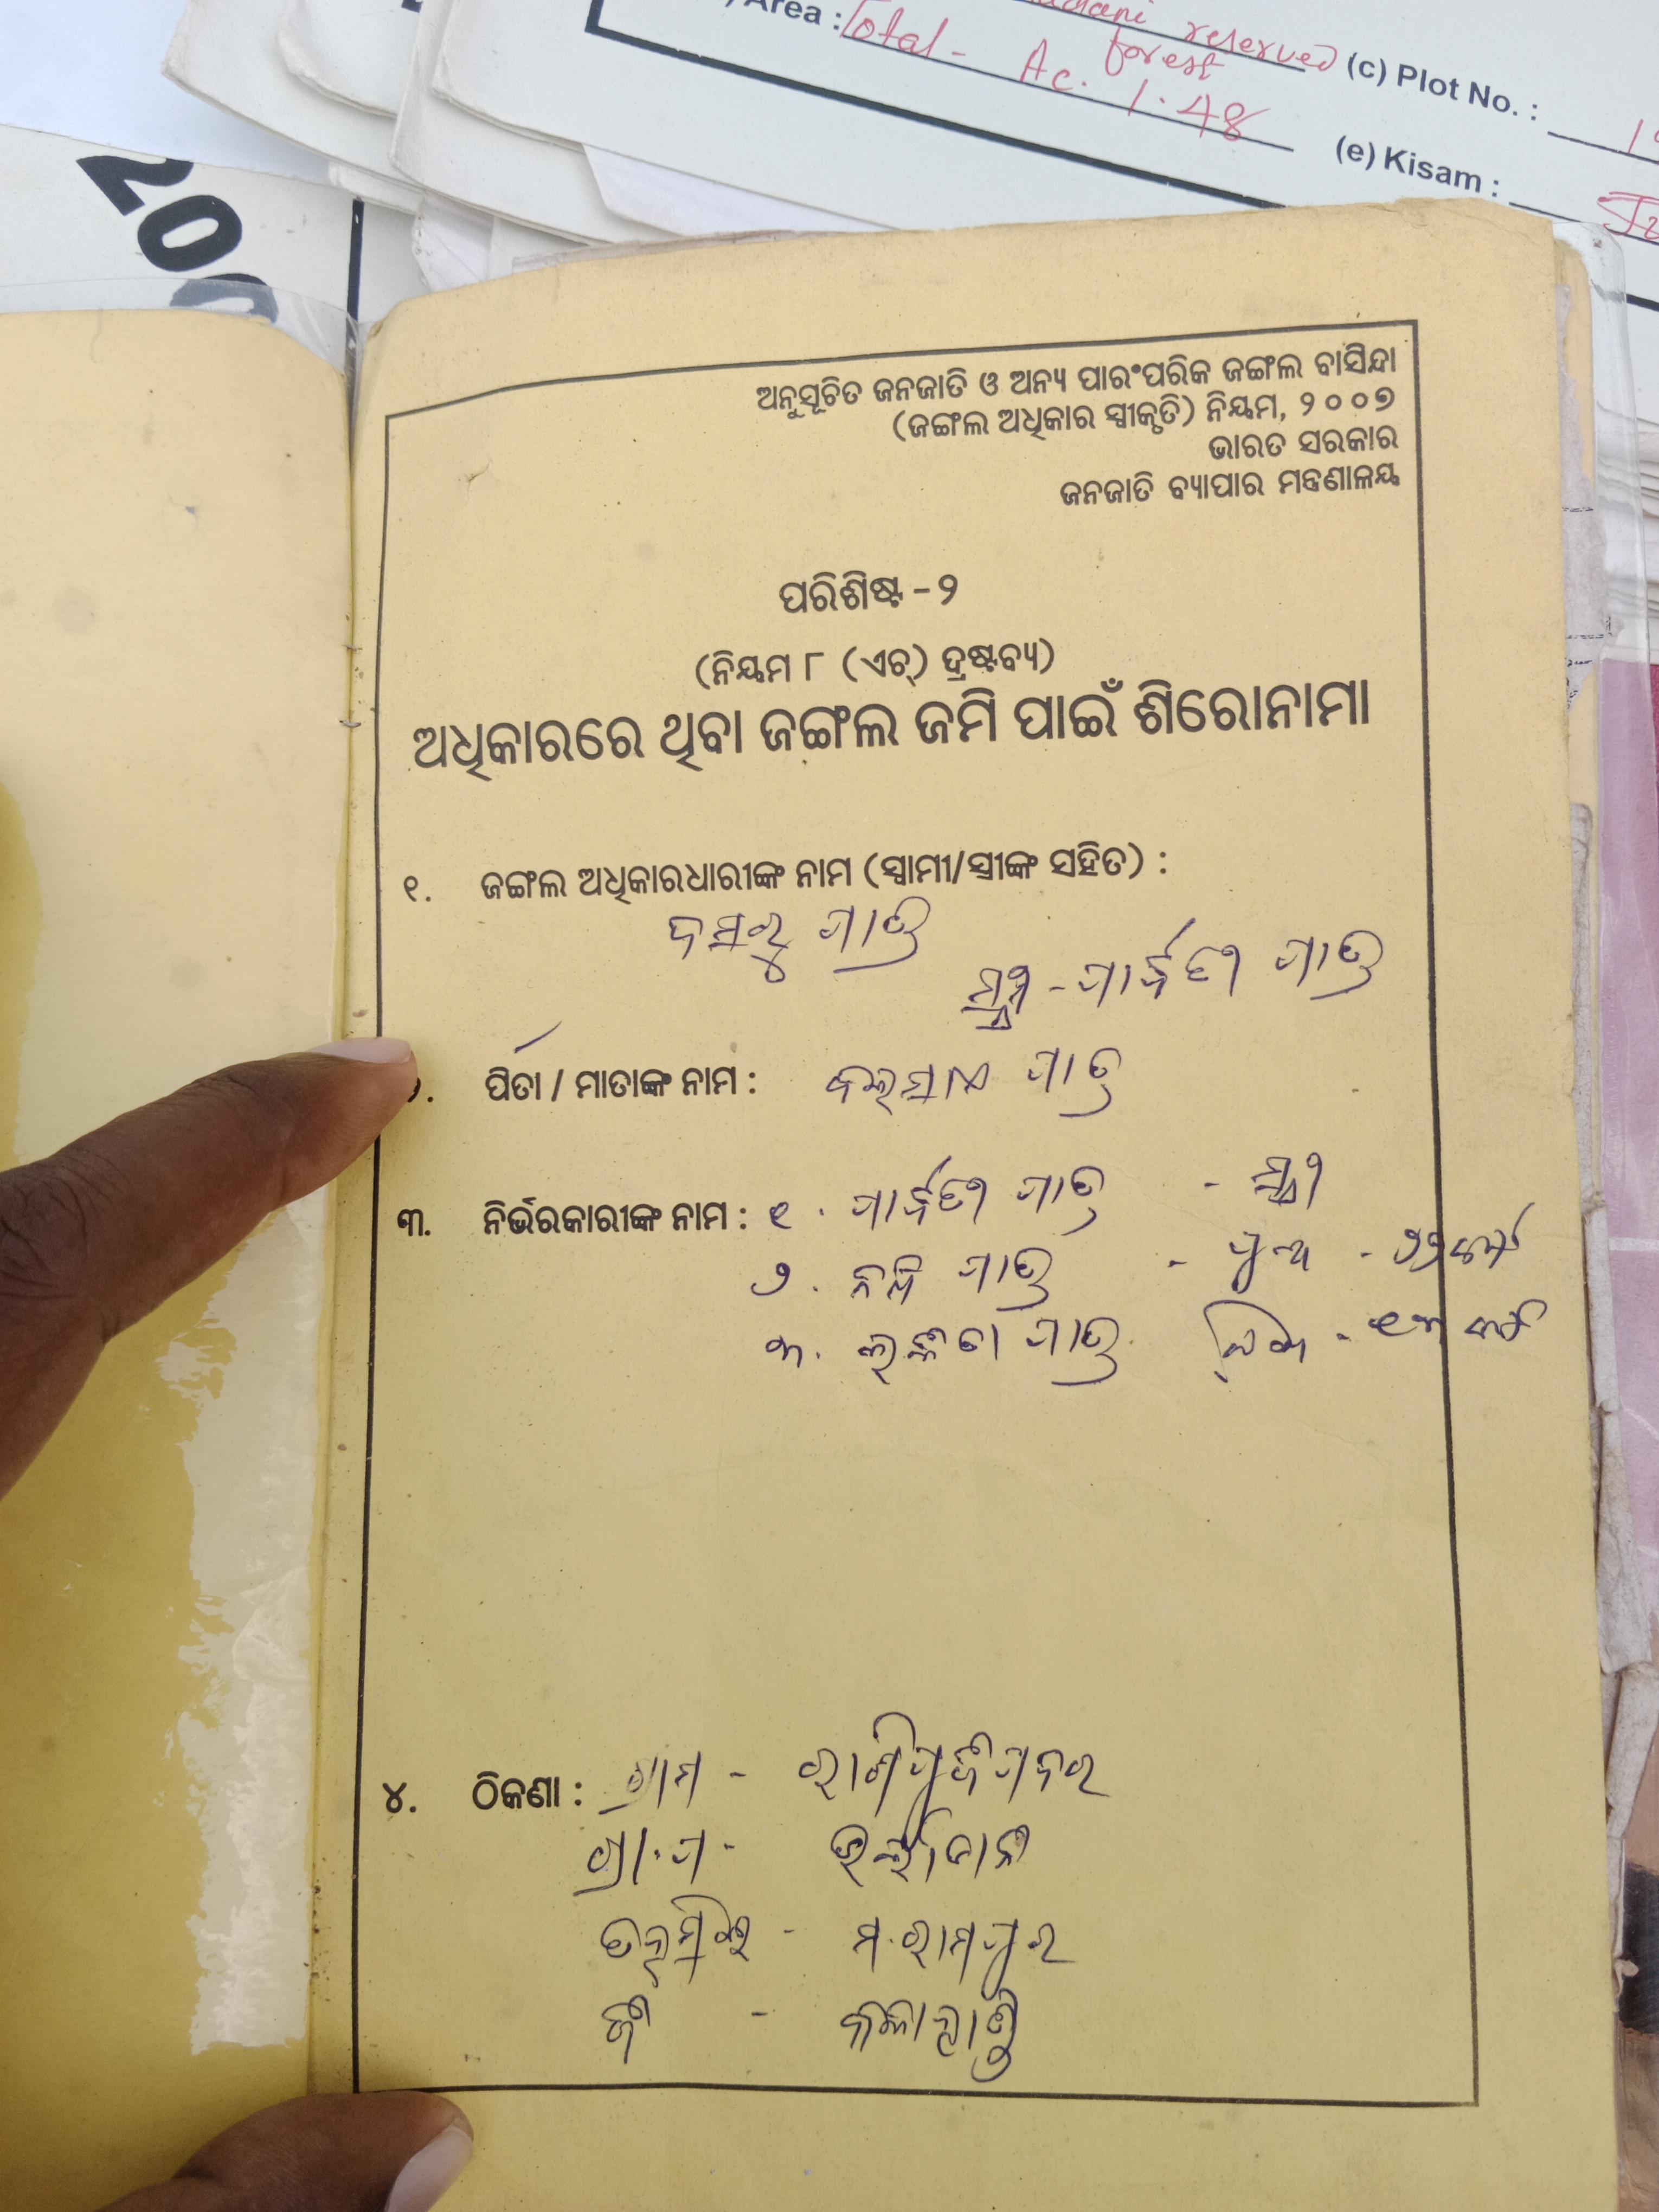 Area : Total - Ac. 1.48
reserved forest
(c) Plot No. :
(e) Kisam :
200
ଅନୁସୂଚିତ ଜନଜାତି ଓ ଅନ୍ୟ ପାରଂପରିକ ଜଙ୍ଗଲ ବାସିନ୍ଦା
(ଜଙ୍ଗଲ ଅଧିକାର ସ୍ୱୀକୃତି) ନିୟମ, ୨୦୦୭
ଭାରତ ସରକାର
ଜନଜାତି ବ୍ୟାପାର ମନ୍ତ୍ରଣାଳୟ
ପରିଶିଷ୍ଟ - ୨
(ନିୟମ ୮ (ଏଚ୍) ଦ୍ରଷ୍ଟବ୍ୟ)
ଅଧିକାରରେ ଥିବା ଜଙ୍ଗଲ ଜମି ପାଇଁ ଶିରୋନାମା
୧. ଜଙ୍ଗଲ ଅଧିକାରଧାରୀଙ୍କ ନାମ (ସ୍ୱାମୀ/ସ୍ତ୍ରୀଙ୍କ ସହିତ) :
ଦସରୁ ପାତ୍ର
ସ୍ତ୍ରୀ - ପାର୍ବତୀ ପାତ୍ର
ପିତା / ମାତାଙ୍କ ନାମ : ପାତ୍ର
୩. ନିର୍ଭରକାରୀଙ୍କ ନାମ : ୧. ପାର୍ବତୀ ପାତ୍ର - ସ୍ତ୍ରୀ
୨. ପାତ୍ର - ପୁଅ -
୩. ପାତ୍ର ଝିଅ - ୧୩ ବର୍ଷ
୪. ଠିକଣା : ଗ୍ରାମ -
ଗ୍ରା.ପ -
ତହସିଲ - ମ.ରାମପୁର
ଜି - କଳାହାଣ୍ଡି